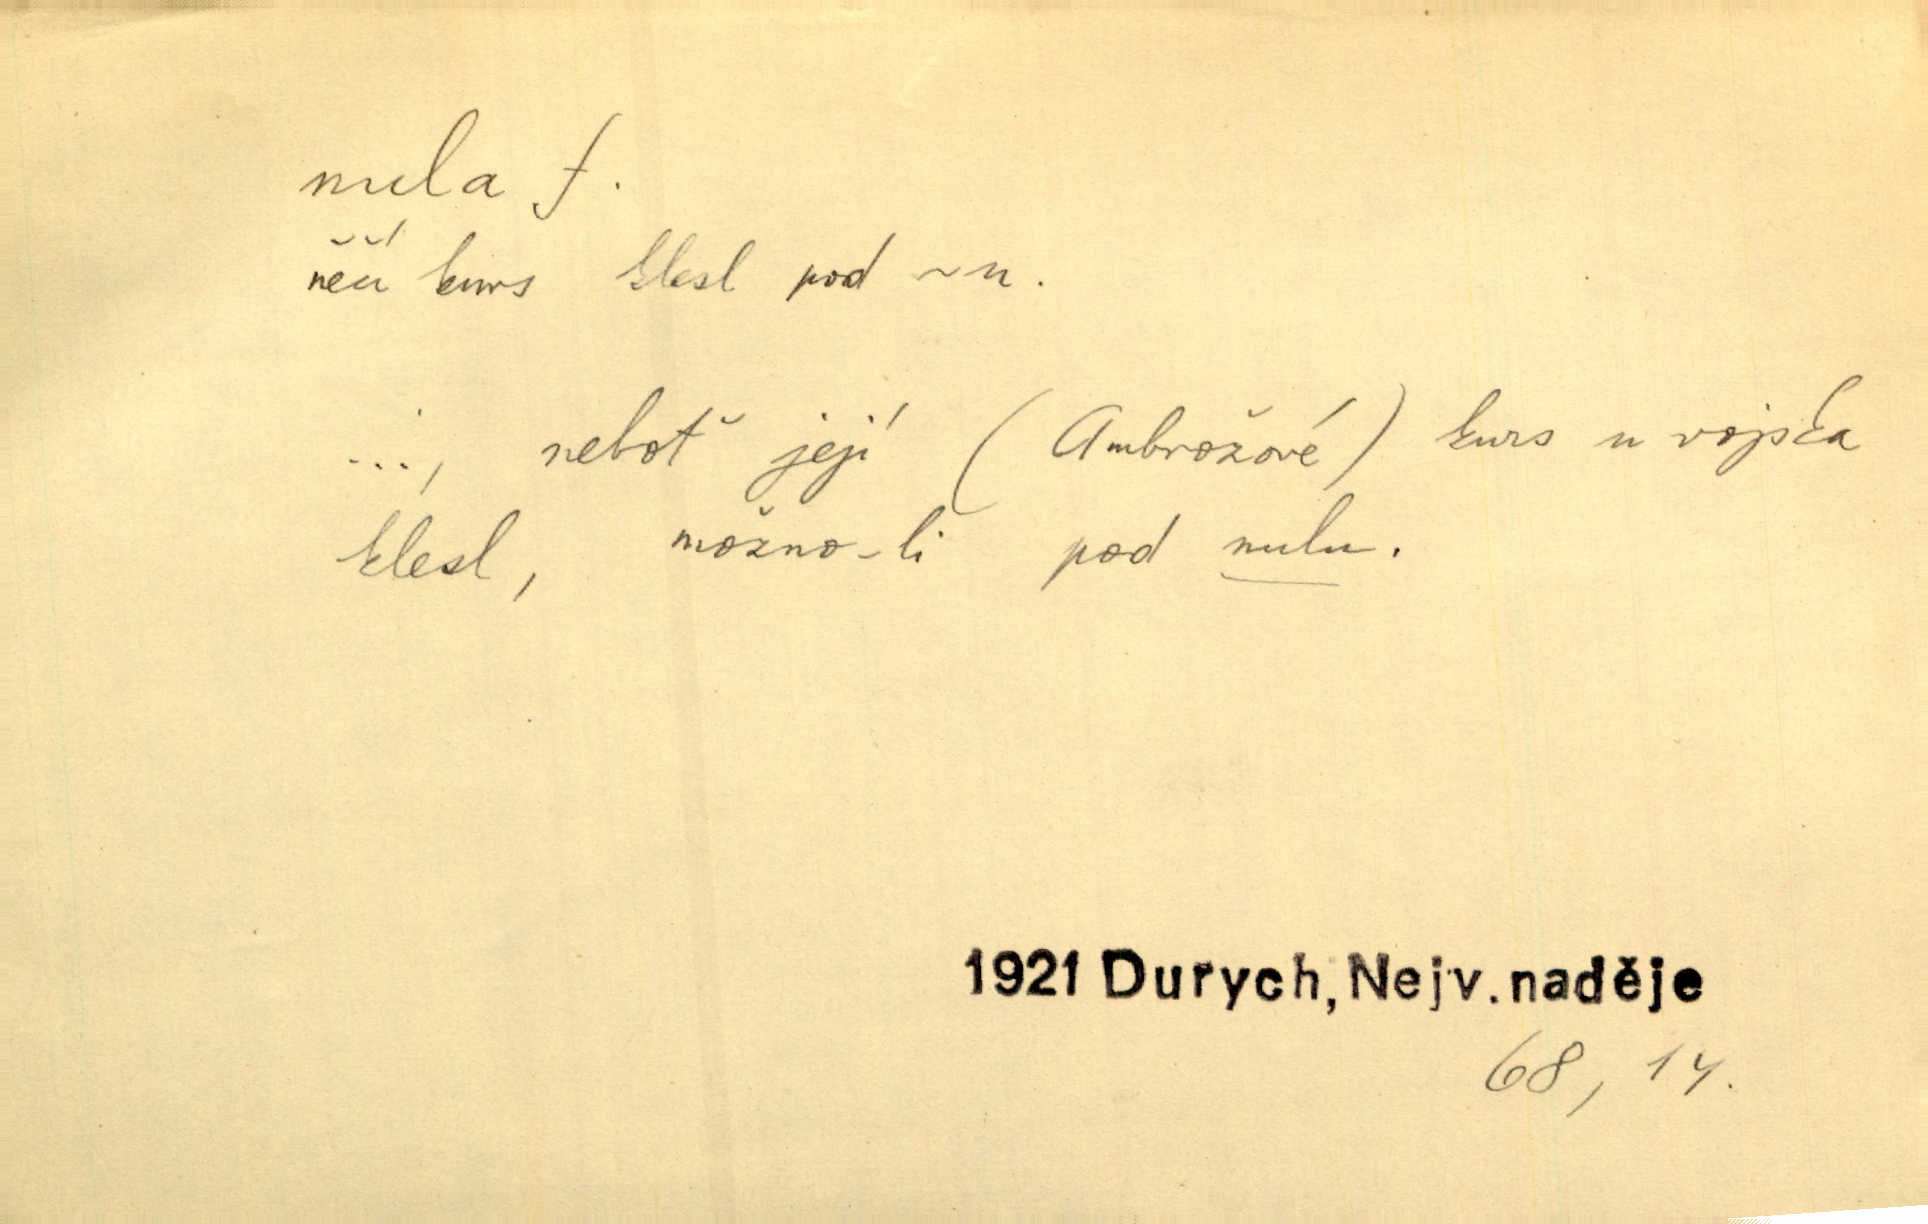 nula f.
něčí kurs klesl pod ~u.
..., neboť její (Ambrožové) kurs u vojska
klesl, možno-li pod nulu.
1921 Durych, Nejv. naděje
68, 14.